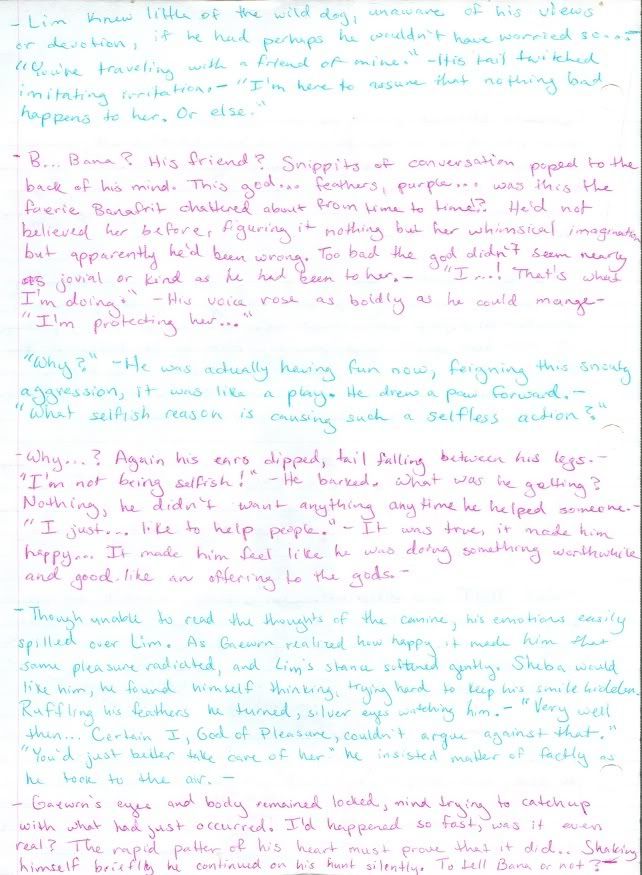 - Lim knew little of the wild dog, unaware of his views
or devotion, if he had perhaps he wouldn't have worried so...-
"You're traveling with a friend of mine." -His tail twitched
imitating irritation.- "I'm here to assure that nothing bad
happens to her. Or else."
- B... Bana? His friend? Snippits of conversation poped to the
back of his mind. This god... feathers, purple... was this the
faerie Banafrit chattered about from time to time!? He'd not
believed her before, figuring it nothing but her whimsical imagination
but apparently he'd been wrong. Too bad the god didn't seem nearly
as jovial or kind as he had been to her.- "I...! That's what
I'm doing." -His voice rose as boldly as he could mange-
"I'm protecting her..."
"Why?" -He was actually having fun now, feigning this snooty
aggression, it was like a play. He drew a paw forward.-
"What selfish reason is causing such a selfless action?"
-Why...? Again his ears dipped, tail falling between his legs.-
"I'm not being selfish!" -He barked. What was he getting?
Nothing, he didn't want anything anytime he helped someone.-
"I just... like to help people." -It was true, it made him
happy... It made him feel like he was doing something worthwhile
and good. like an offering to the gods.-
-Though unable to read the thoughts of the canine, his emotions easily
spilled over Lim. As Gaewrn realized how happy it made him that
same pleasure radiated, and Lim's stance softened gently. Sheba would
like him, he found himself thinking, trying hard to keep his smile hidden.
Ruffling his feathers he turned, silver eyes watching him.- "Very well
then... Certain I, God of Pleasure, couldn't argue against that."
"You'd just better take care of her" he insisted matter of factly as
he took to the air. -
- Gaewrn's eyes and body remained locked, mind trying to catch up
with what had just occurred. I'd happened so fast, was it even
real? The rapid patter of his heart must prove that it did.. Shaking
himself briefly he continued on his hunt silently. To tell Bana or not?-